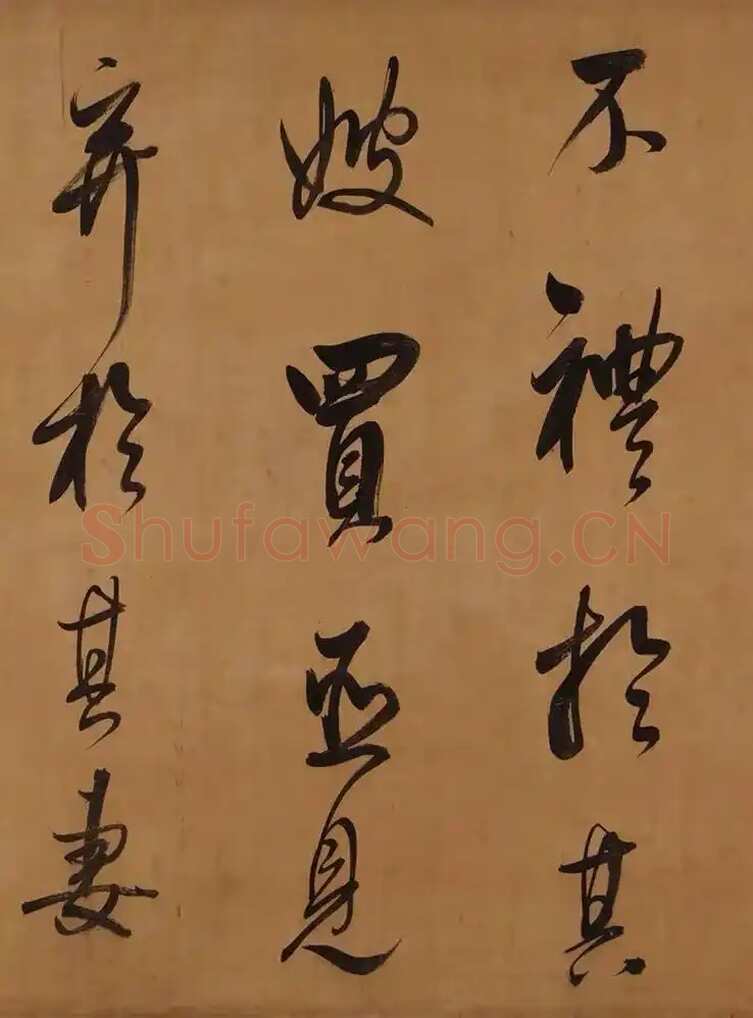 不禮於其
嫂買臣見
弃於其妻
Shufawang.CN